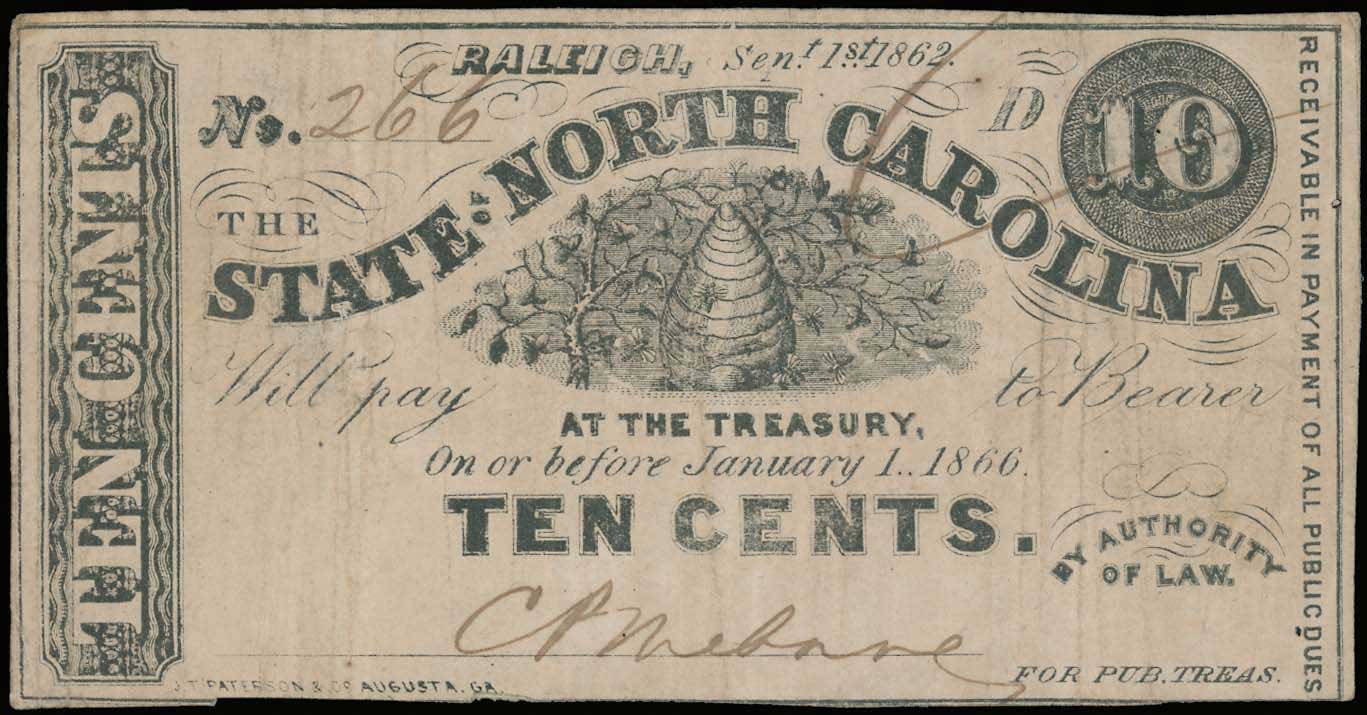 RALEIGH, Sept. 1st. 1862.
No. 266
D
10
THE
STATE OF NORTH CAROLINA
Will pay to Bearer
AT THE TREASURY,
On or before January 1.. 1866.
TEN CENTS.
BY AUTHORITY
OF LAW.
C P Mebane
FOR PUB. TREAS.
J. T. PATERSON & Co AUGUSTA. GA.
TEN CENTS
RECEIVABLE IN PAYMENT OF ALL PUBLIC DUES